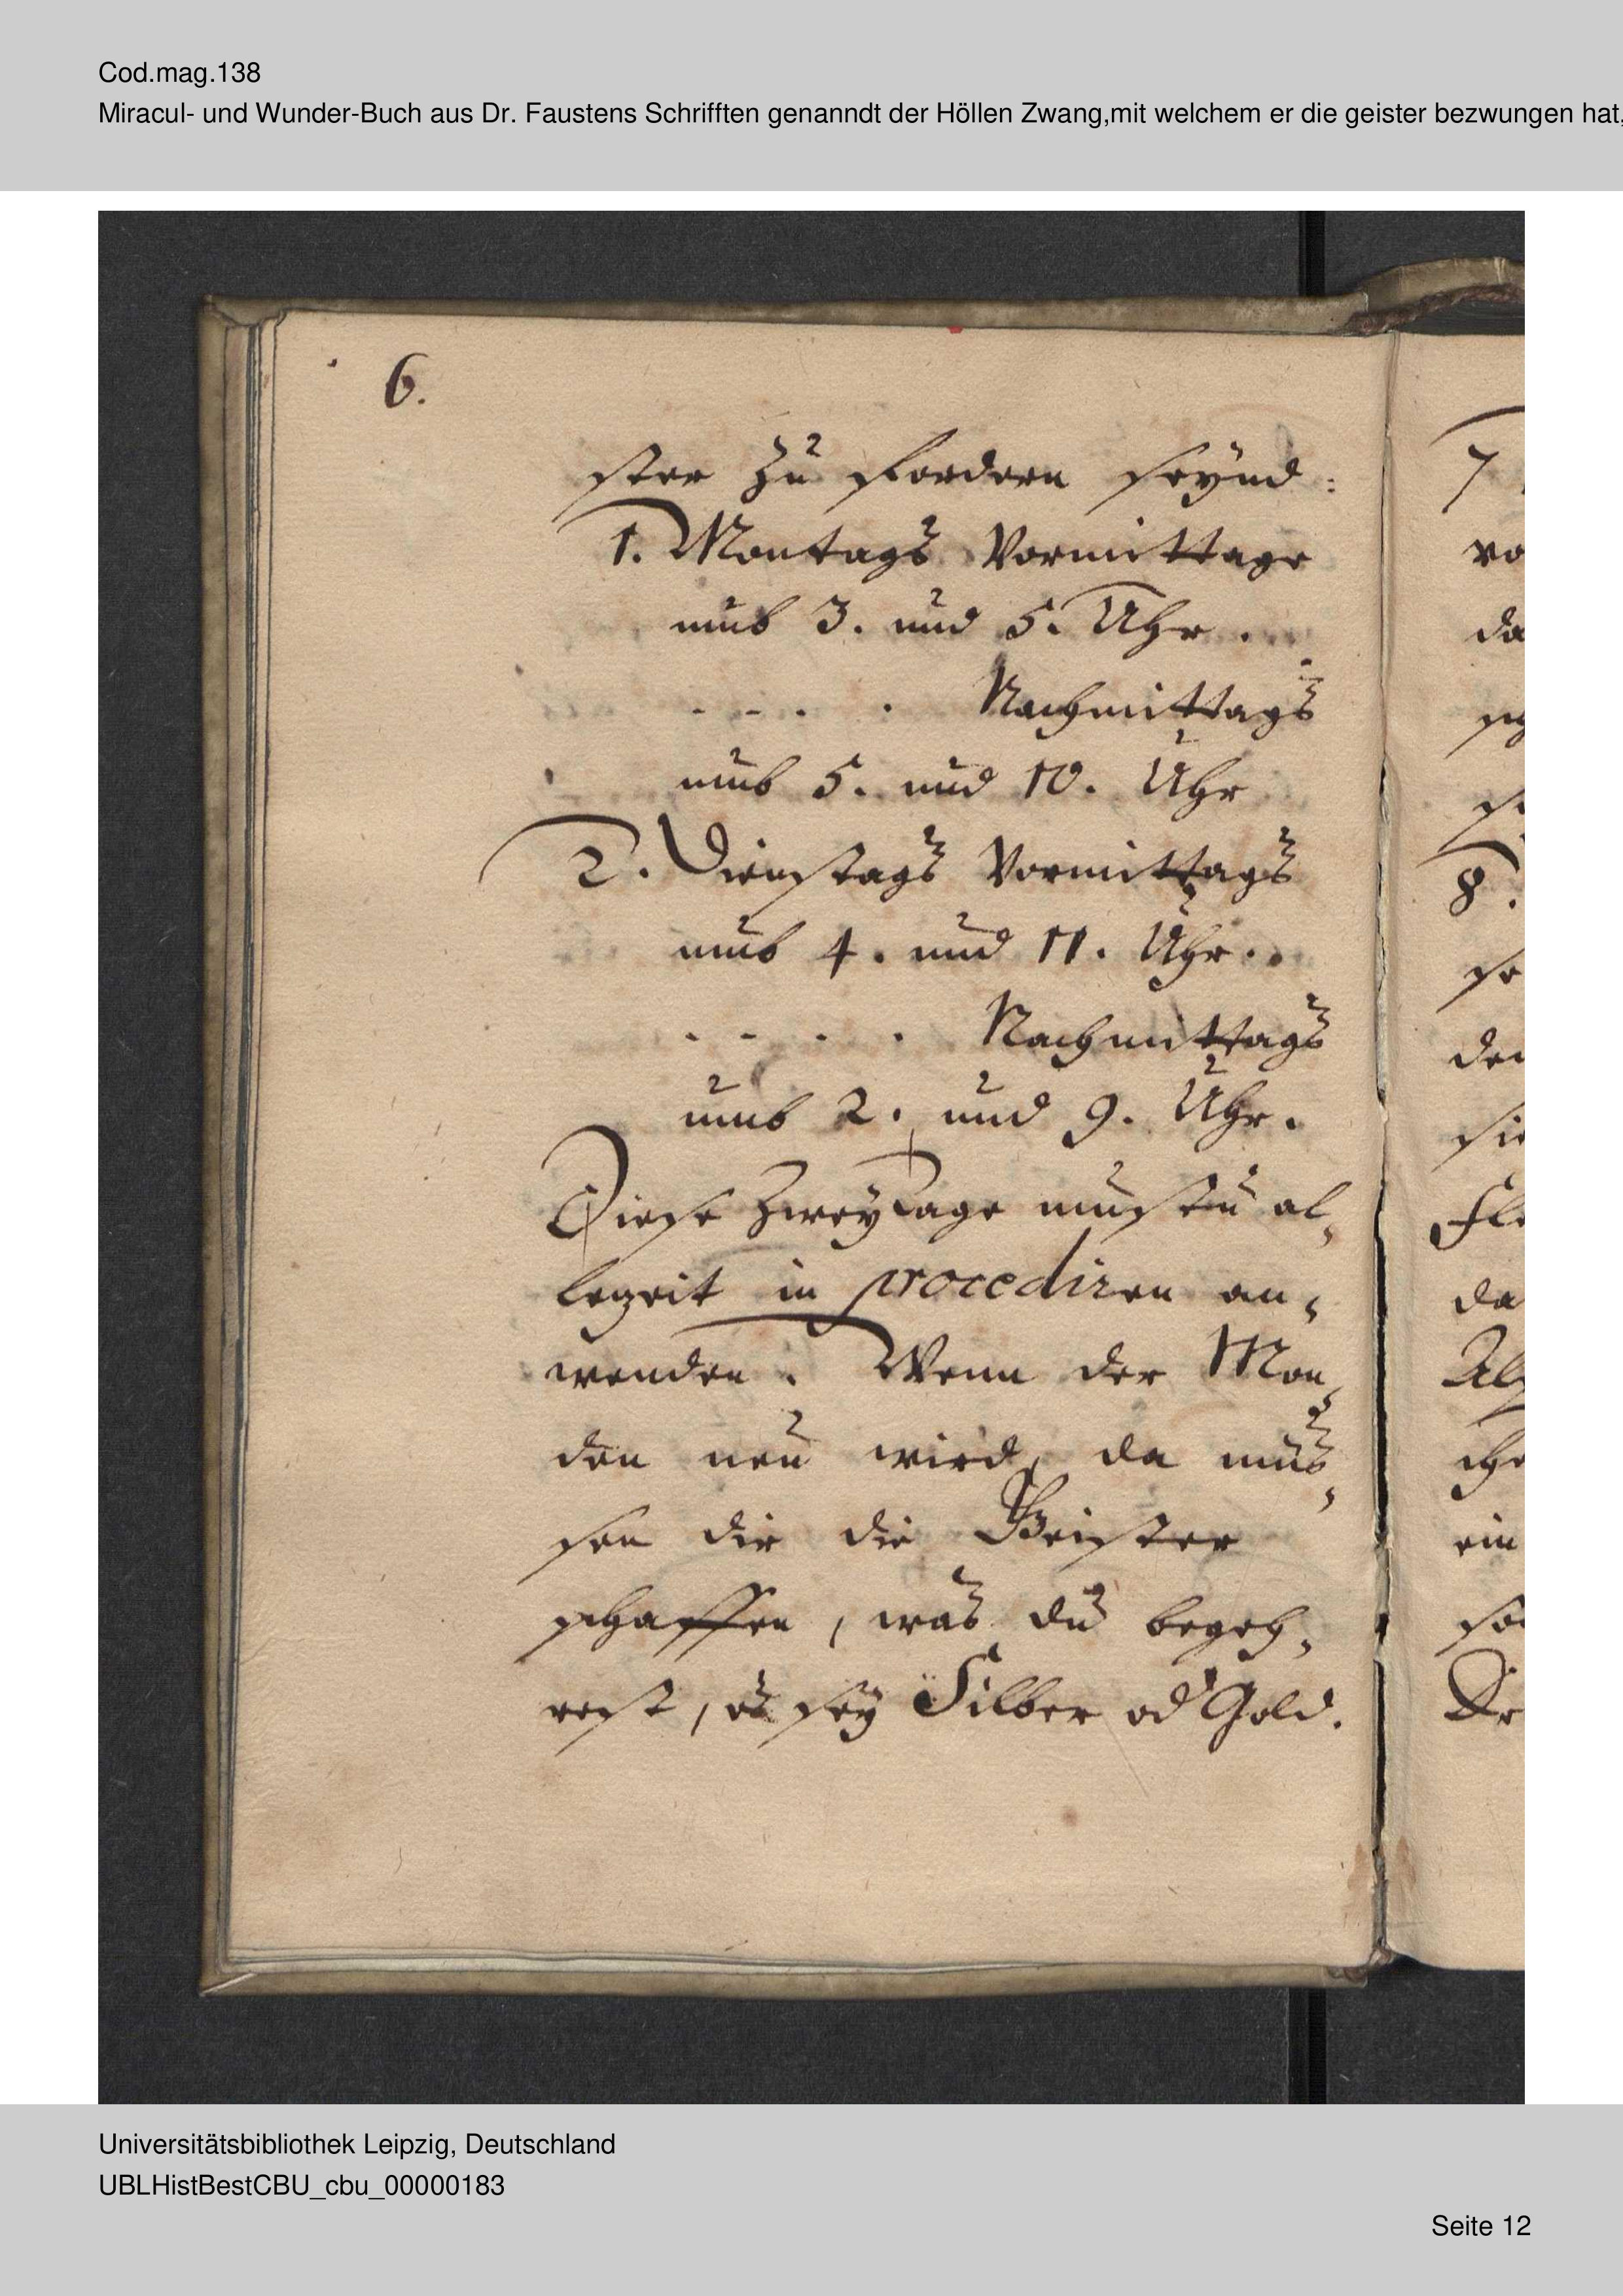 Cod.mag.138
Miracul- und Wunder-Buch aus Dr. Faustens Schrifften genanndt der Höllen Zwang,mit welchem er die geister bezwungen hat,
6.
ster zu fordern seynd:
1. Montags Vormittage
umb 3. und 5. Uhr.
- - - - Nachmittags
umb 5. und 10. Uhr
2. Dienstags Vormittags
umb 4. und 11. Uhr.
- - - - Nachmittags
umb 2. und 9. Uhr.
Diese zwey Tage mustu al,
lezeit in procediren an,
wenden. Wenn der Mon,
den neu wird, da müs,
sen dir die Geister
schaffen, was du begeh,
rest, es sey Silber od Gold.
7
vo
da
8.
se
den
sie
da
ein
Universitätsbibliothek Leipzig, Deutschland
UBLHistBestCBU_cbu_00000183
Seite 12